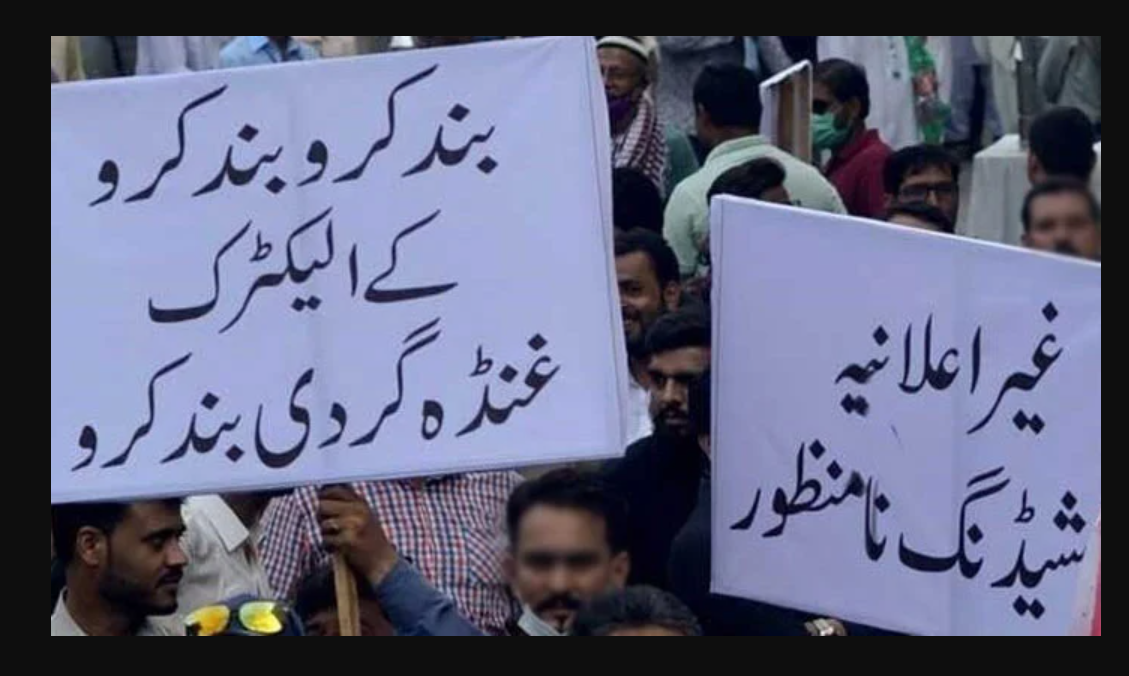 بند کرو بند کرو
کے الیکٹرک
غنڈہ گردی بند کرو
غیر اعلانیہ
شیڈنگ نامنظور